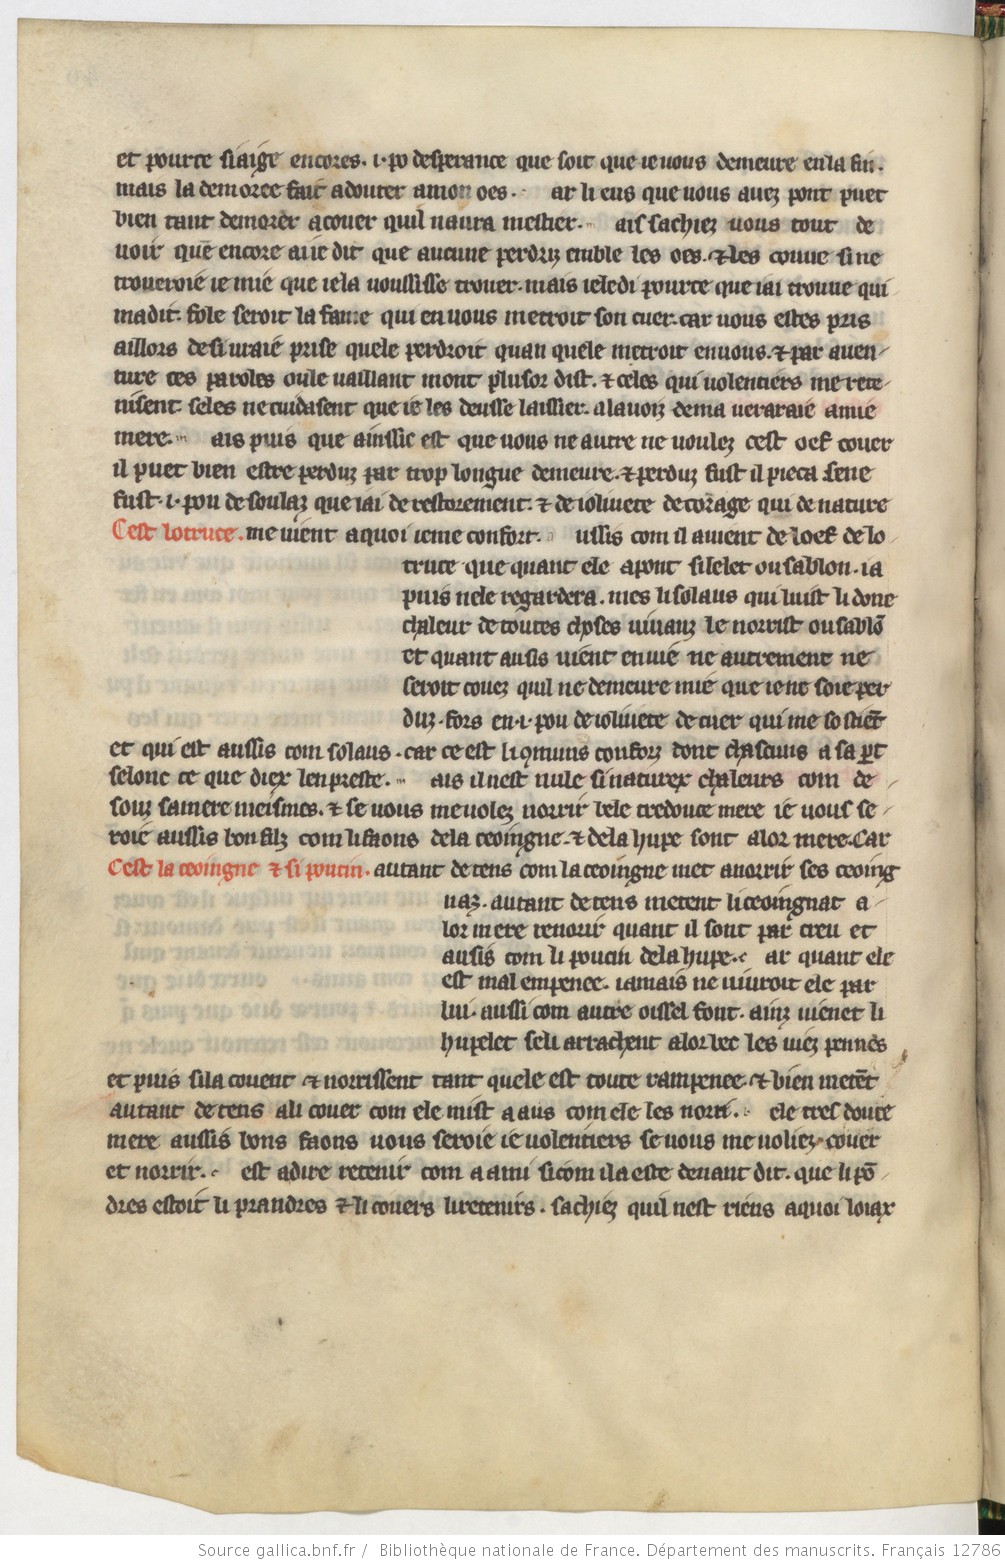 et pource si aige encores .i. po desperance que soit que ie uous demeure en la fin.
mais la demoree fait a douter a mon oes. ar li eus que uous auez pont puet
bien tant demorer a couer quil naura mestier. ais sachiez uous tout de
uoir que encore aiie dit que aucune perdriz emble les oes. & les couue si ne
troueroie ie mie que ie la uoussisse trouer. mais ie le di pource que iai trouue qui
ma dit. fole seroit la fame qui en uous metroit son cuer. car uous estes pris
aillors de si uraie prise quele perdroit quan quele metroit en uous. & par auen-
ture ces paroles ou le uaillant mont plusor dist. & celes qui uolentiers me rete-
nisent. seles ne cuidasent que ie les deusse laissier. a la uoiz de ma ueraraie amie
mere. ais puis que ainssic est que uous ne autre ne uoulez cest oef couer
il puet bien estre perduz par trop longue demeure. & perduz fust il pieca se ne
fust .i. pou de soulaz que iai de restorement. & de ioliuete de corage qui de nature
Cest lotruce. me uient a quoi ie me confort. ussis com il auient de loef de lo
truce que quant ele a pont si le let ou sablon. ia
puis ne le regardera. mes li solaus qui luist li done
chaleur de toutes choses uiuanz le norrist ou sablō
et quant ausis uient en uie ne autrement ne
seroit couez quil ne demeure mie que ie ne soie per
duz. fors en .i. pou de ioliuete de cuer qui me sostiēt
et qui est aussis com solaus. car ce est li qmuns conforz dont chascuns a sa pt
selonc ce que diex len preste. ais il nest nule si naturex chaleurs com de
souz sa mere meismes. & se uous me uolez norrir bele tredouce mere ie uous se-
roie aussis bon filz com li faons de la ceoingne. & de la hupe sont a lor mere. Car
Cest la ceoingne & si poucin. autant de tens com la ceoingne met a norrir ses ceoing
naz. autant de tens metent li ceoingnat a
lor mere renorir quant il sont par creu et
ausis com li poucin de la hupe. ar quant ele
est mal empenee. iamais ne muiroit ele par
lui. aussi com autre oissel font. ainz uienet li
hupelet se li arrachent a lor bec les uiez pennes
et puis si la couent & norrissent tant quele est toute rampenee. & bien metēt
autant de tens a li couer com ele mist a aus com ele les norri. ele tres douce
mere aussis bons faons uous seroie ie uolentiers se uous me uoliez couer
et norrir. est a dire retenir com a ami si com il a este deuant dit. que li pō-
dres estoit li prandres & li couers li retenirs. sachiez quil nest riens a quoi loiax
Source gallica.bnf.fr / Bibliothèque nationale de France. Département des manuscrits. Français 12786